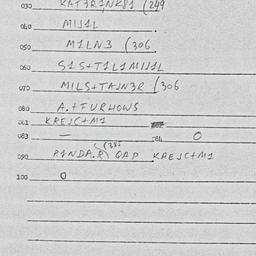 030 KAT3R1NK81 (249
040 M1J1L
050 M1LN3 (306
060 S1S+T1L1M1J1L
070 M1LS+TAJN3R (306
080 A.+FURHOWS
081 KREJC+M1
083 — 084 0
(381
090 R1NDA.R\ QAP KREJC+M1
100 0